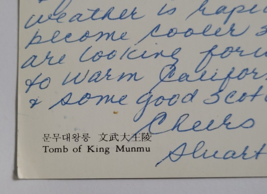 weather is rapid
become cooler &
are looking forw
to warm Califor
& some good Scot
Cheers
Stuart
문무대왕릉 文武大王陵
Tomb of King Munmu